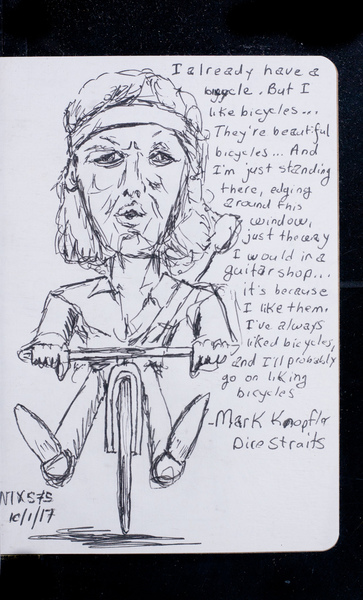 I already have a
bicycle. But I
like bicycles...
They're beautiful
bicycles... And
I'm just standing
there, edging
around this
window,
just the way
I would in a
guitar shop...
it's because
I like them.
I've always
liked bicycles,
and I'll probably
go on liking
bicycles
-Mark Knopfler
Dire Straits
NIX575
10/1/17